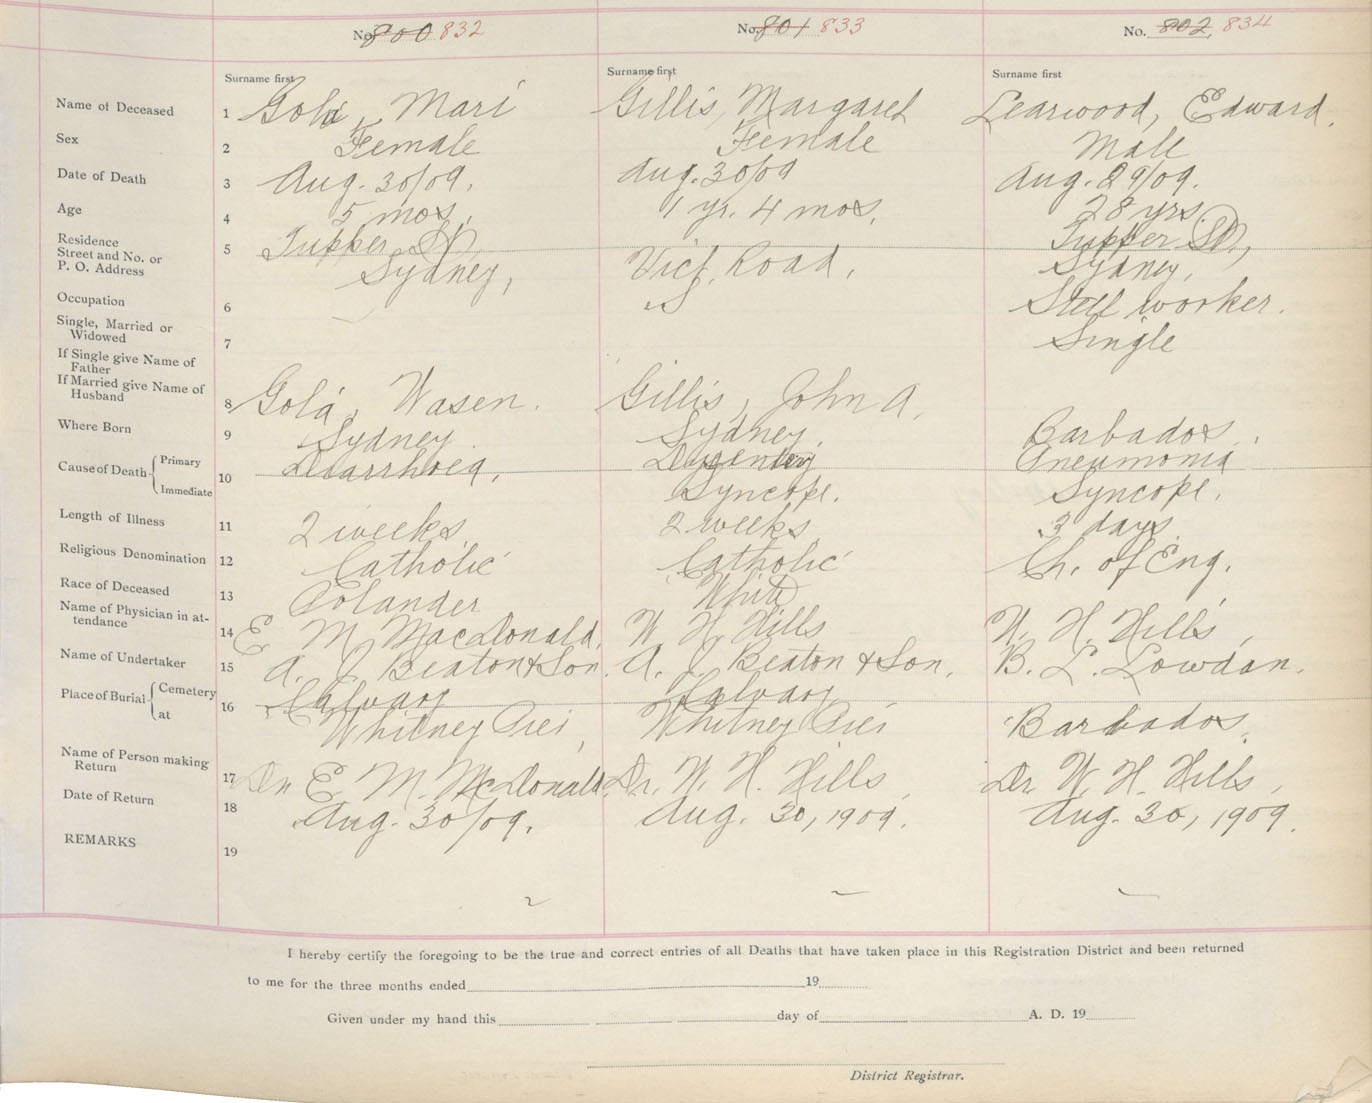 No. 800 832
No. 801 833
No. 802 834
Surname first
Surname first
Surname first
Name of Deceased 1 Gola, Mari Gillis, Margaret Learwood, Edward.
Sex 2 Female Female Male
Date of Death 3 Aug. 30/09. Aug. 30/09 Aug. 29/09.
Age 4 5 mos. 1 yr. 4 mos. 28 yrs.
Residence
Street and No. or 5 Tupper St, Vict. Road. Tupper St,
P. O. Address Sydney, S Sydney.
Occupation 6 Steel worker.
Single, Married or
Widowed 7 Single
If Single give Name of
Father
If Married give Name of
Husband 8 Gola, Wasen. Gillis, John A.
Where Born 9 Sydney. Sydney. Barbados.
Cause of Death Primary Diarrhoea. Dysentery Pneumonia
Immediate 10 Syncope. Syncope.
Length of Illness 11 2 weeks 2 weeks 3 days.
Religious Denomination 12 Catholic Catholic Ch. of Eng.
Race of Deceased 13 Polander White
Name of Physician in at-
tendance 14 E M MacDonald. W H Hills W. H. Hills,
Name of Undertaker 15 A. J. Beaton & Son. A. J. Beaton & Son. B. L. Lowdan.
Place of Burial Cemetery 16 Calvary Calvary
at Whitney Pier, Whitney Pier Barbados.
Name of Person making
Return 17 Dr E. M. McDonald. Dr. W. H. Hills, Dr W. H. Hills,
Date of Return 18 Aug. 30/09. Aug. 30, 1909. Aug. 30, 1909.
REMARKS 19
I hereby certify the foregoing to be the true and correct entries of all Deaths that have taken place in this Registration District and been returned
to me for the three months ended 19
Given under my hand this day of A. D. 19
District Registrar.